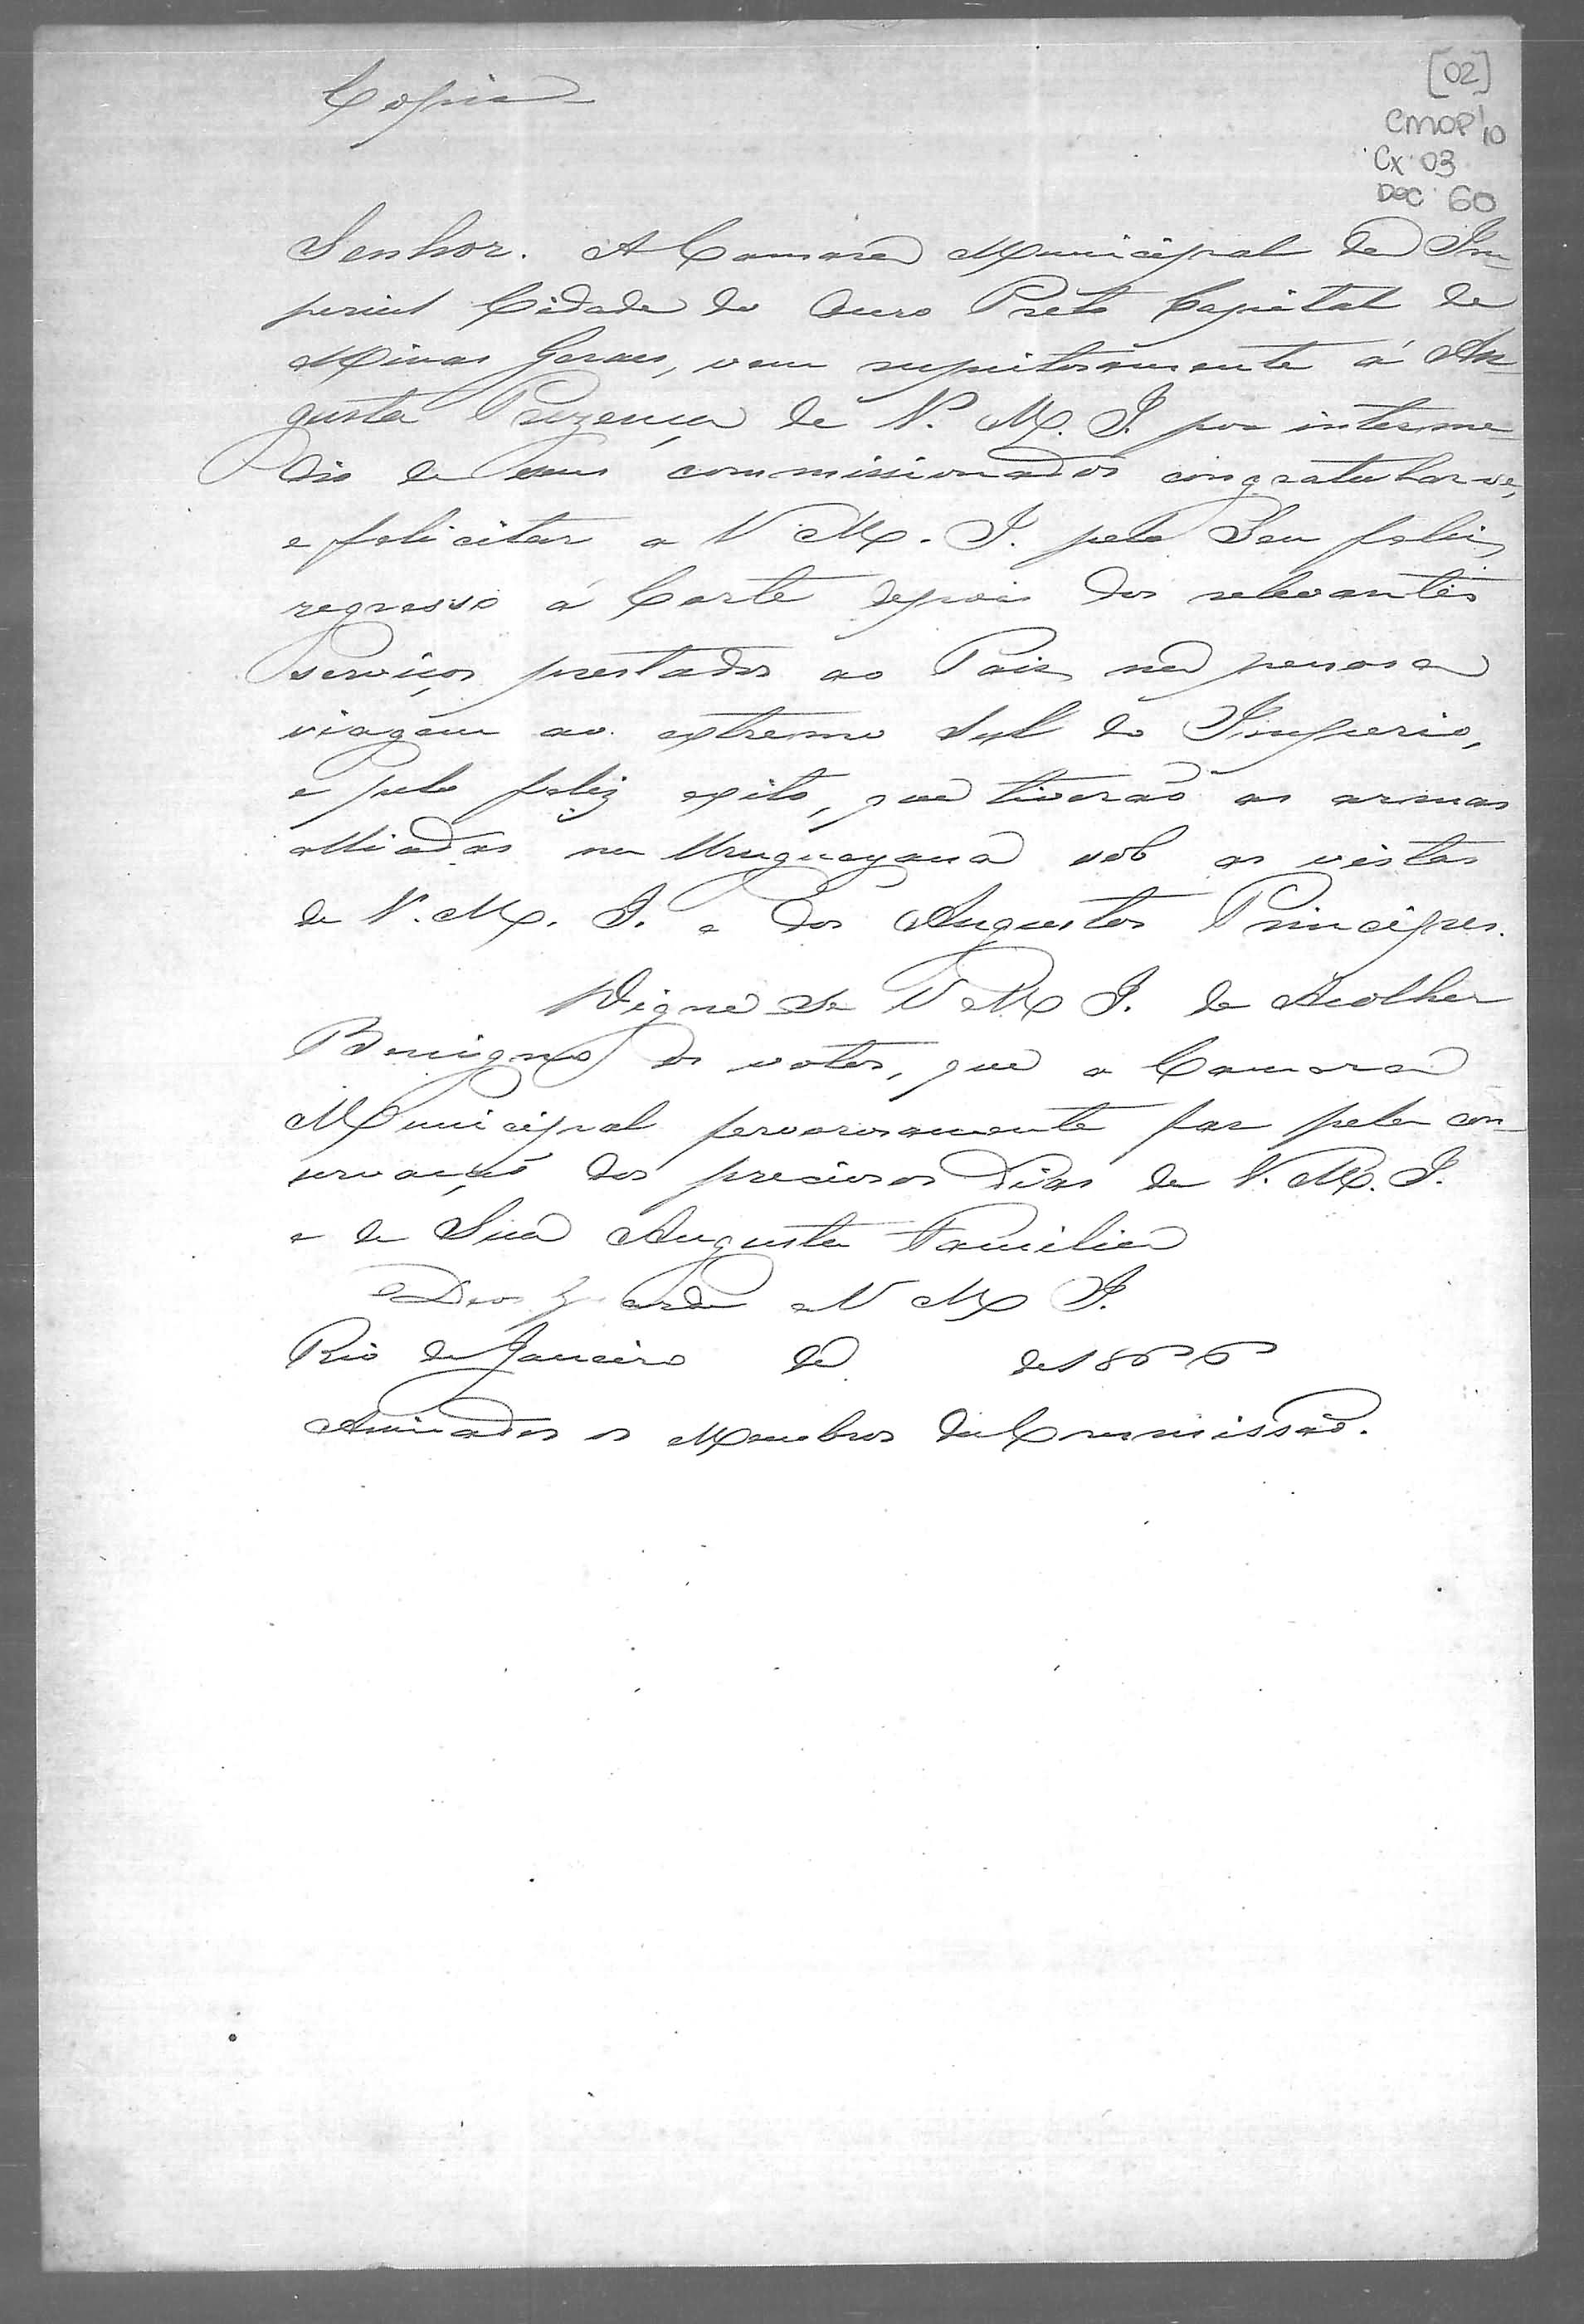 Copia
[02]
CMOP 10
Cx 03
Doc 60
Senhor. A Camara Municipal da Im-
perial Cidade do Ouro Preto Capital de
Minas Geraes, vem respeitosamente á Au-
gusta Prezença de V. M. I. por interme-
dio de seus commissionados congratular-se,
e felicitar a V. M. I. pelo Seu feliz
regresso á Corte depois dos relevantes
serviços prestados ao Paiz na penosa
viagem ao extremo Sul do Imperio,
e pelo feliz exito, que tiverão as armas
alliadas na Uruguayana sob as vistas
de V. M. I. e dos Augustos Principes.
Digne-se V M I. de Acolher
Benigno os votos, que a Camara
Municipal fervorosamente faz pela con-
servação dos preciosos Dias de V. M. I.
e da Sua Augusta Familia
Deos Guarde a V M I.
Rio de Janeiro de de 1866
Assinados os Membros da Commissão.